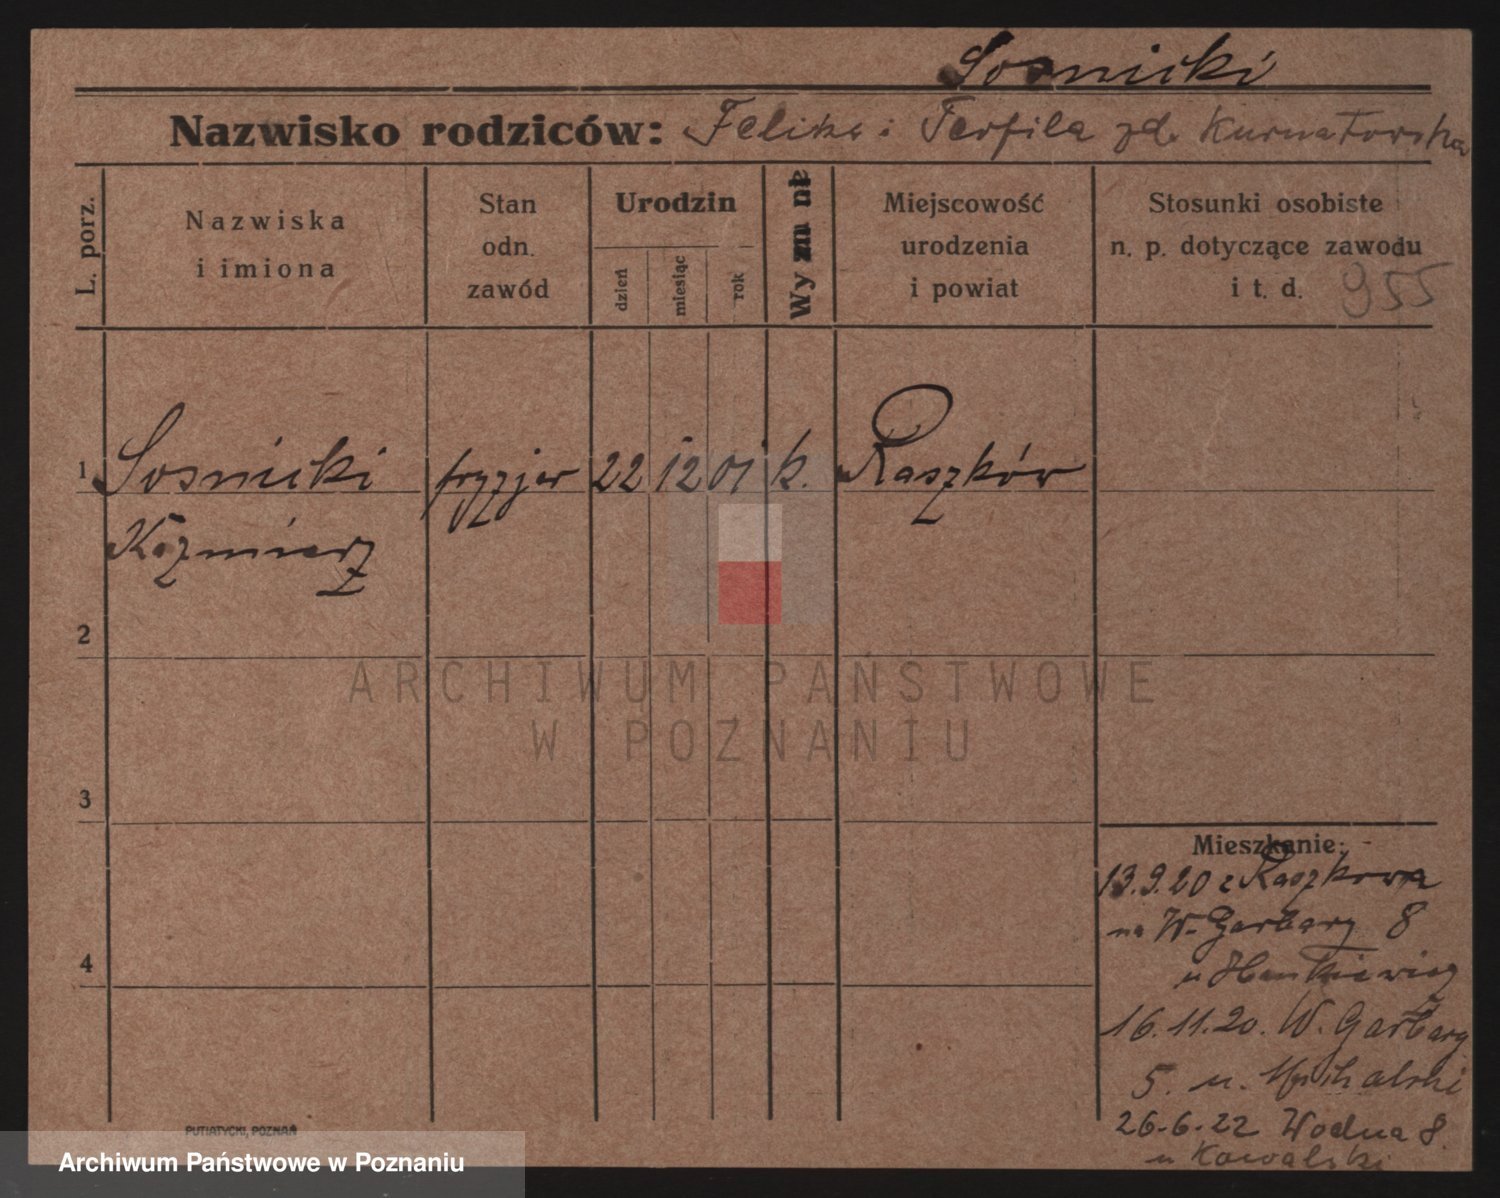 Sosnicki
Nazwisko rodziców: Feliks i Terfila zd. Kurnatowska
L. porz.
Nazwiska
i imiona
Stan
odn.
zawód
Urodzin
dzień
miesiąc
rok
Wyznanie
Miejscowość
urodzenia
i powiat
Stosunki osobiste
n. p. dotyczące zawodu
i t. d.
955
1 Sosnicki fryzjer 22 12 01 k. Raszków
Kazmierz
2
3
4
Mieszkanie:
13.9.20 z Raszkowa
na W. Garbary 8
u
16.11.20. W. Garbary
5. u. Michalski
26-6-22 Wodna 8.
u Kowalski
PUTIATYCKI, POZNAŃ
ARCHIWUM PAŃSTWOWE
W POZNANIU
Archiwum Państwowe w Poznaniu